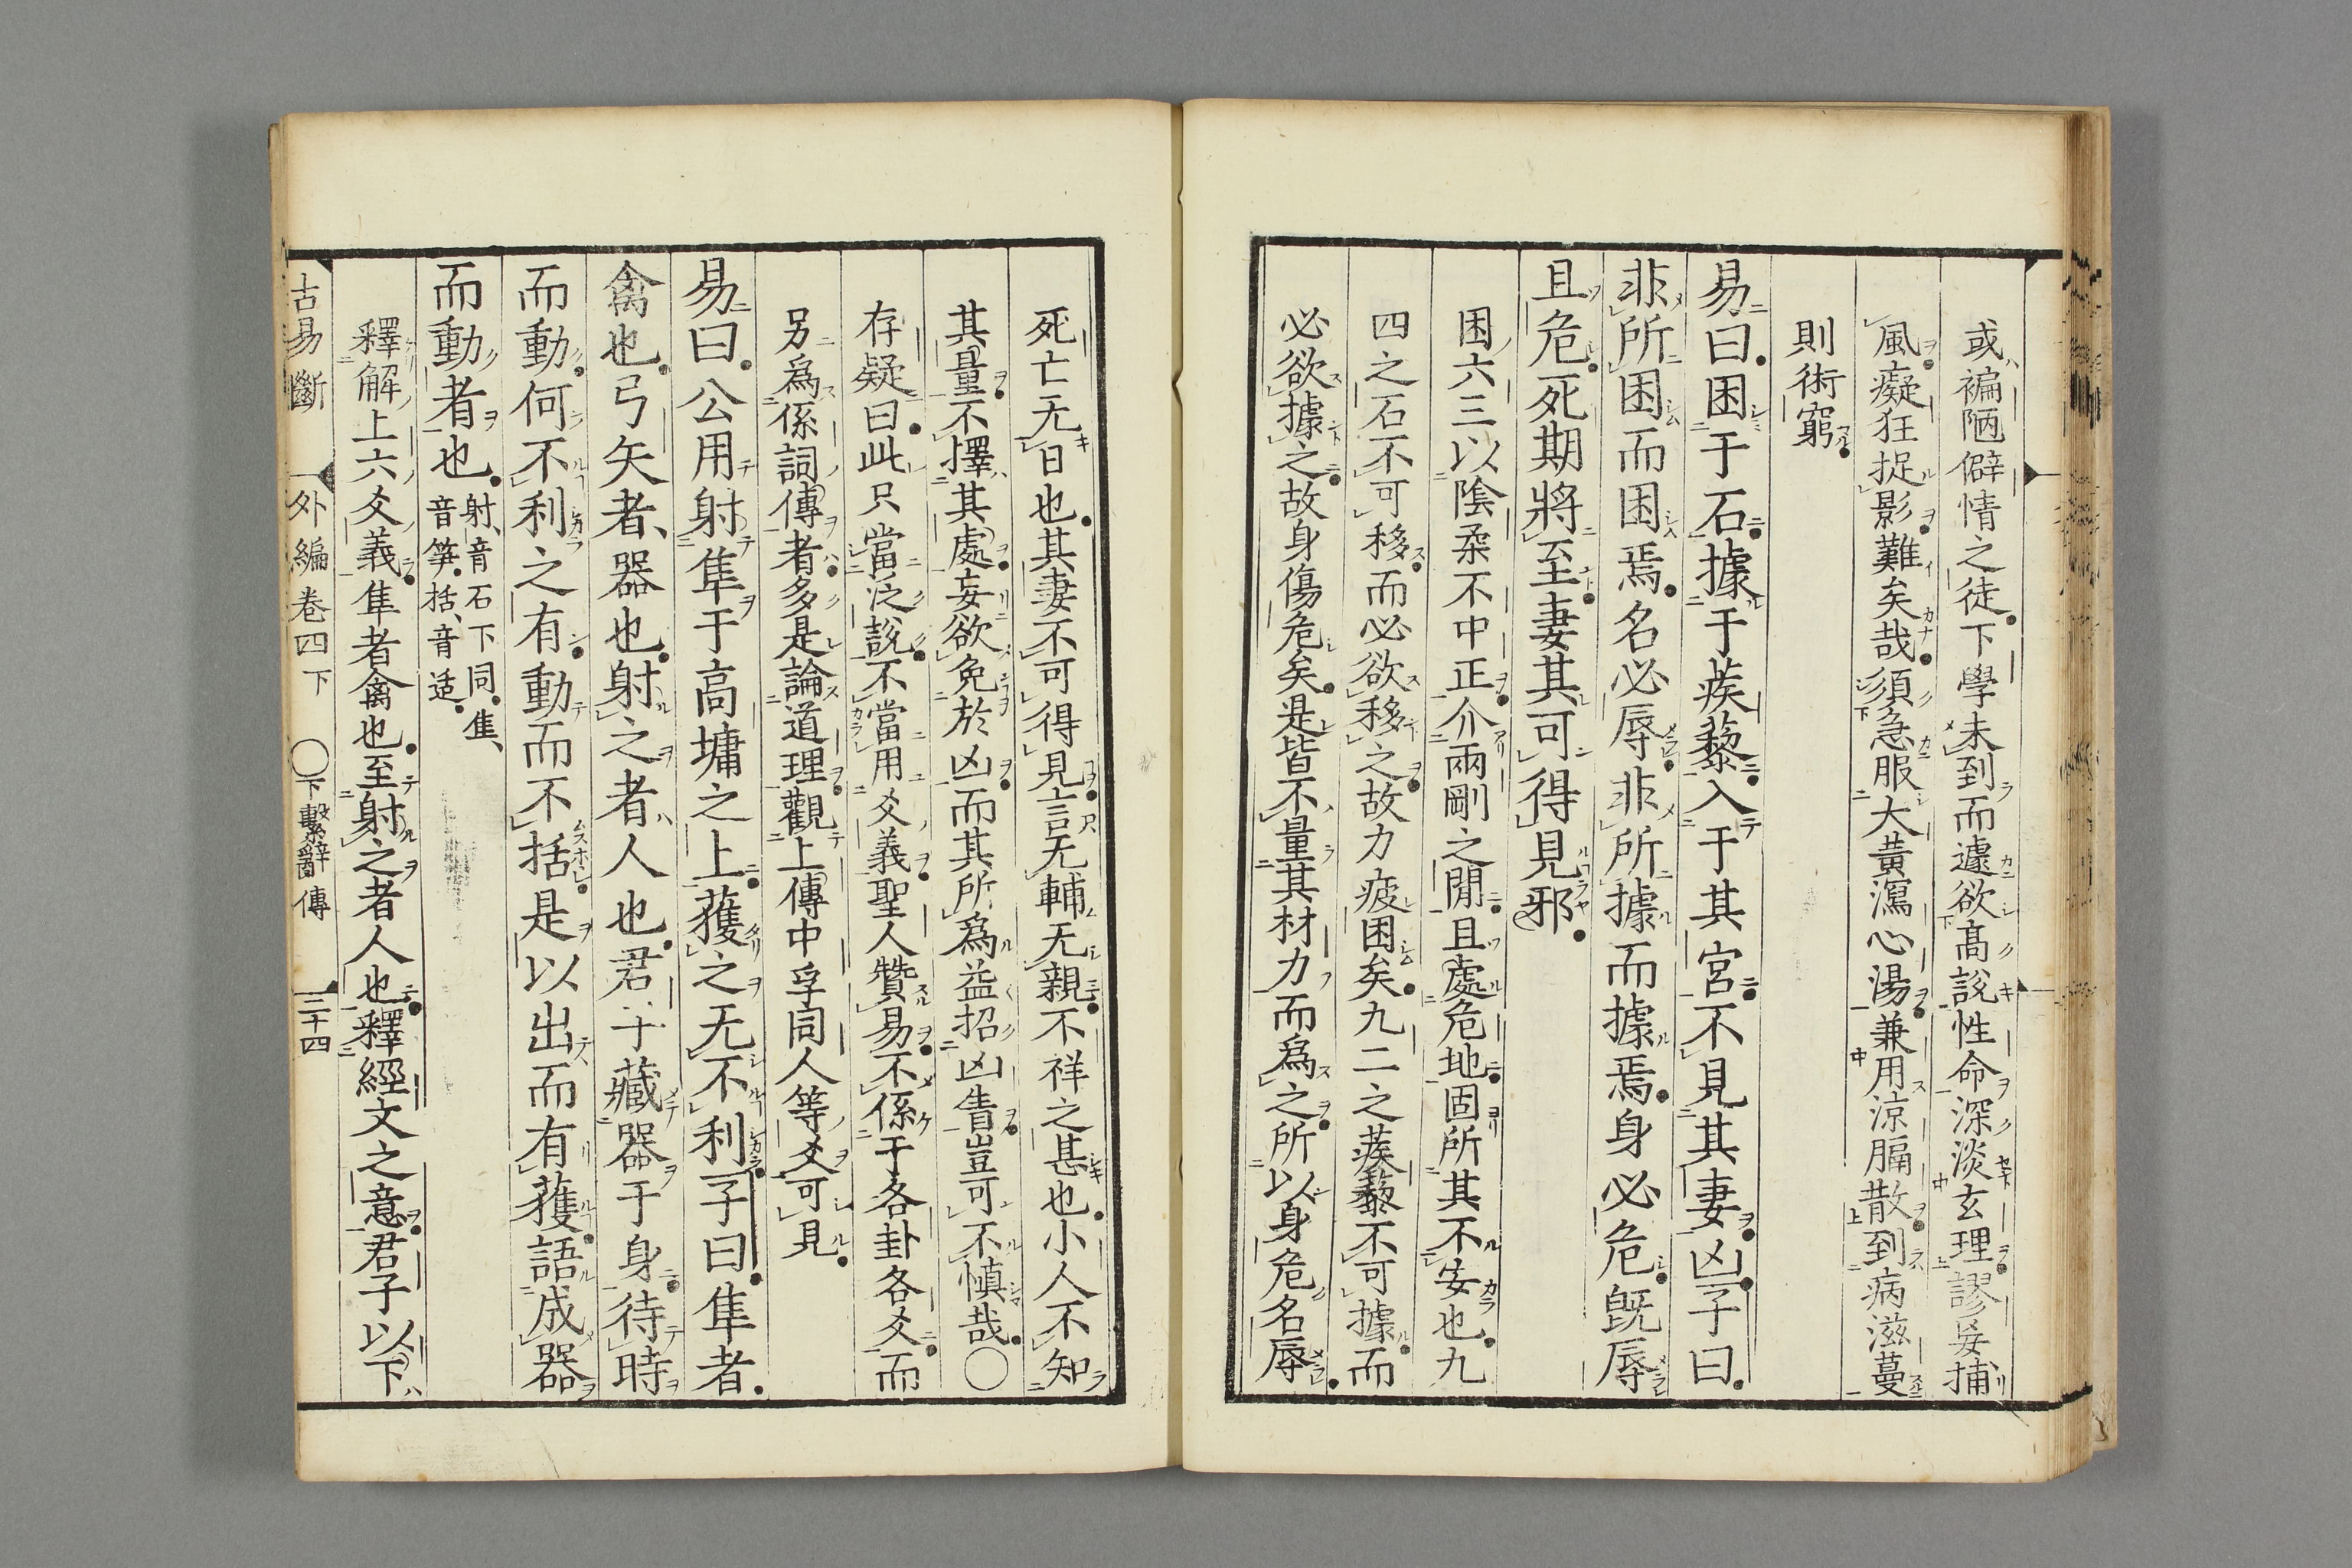 或褊陋僻情之徒下學未到而遽欲髙說性命深淡玄理謬妄捕
風癡狂捉影難矣哉須急服大黄瀉心湯兼用涼膈散到病滋蔓
則術窮
易曰困于石據于蒺藜入于其宮不見其妻凶子曰
非所困而困焉名必辱非所據而據焉身必危旣辱
且危死期將至妻其可得見邪
困六三以陰柔不中正介兩剛之閒且處危地固所其不安也九
四之石不可移而必欲移之故力疲困矣九二之蒺藜不可據而
必欲據之故身傷危矣是皆不量其材力而爲之所以身危名辱
死亡无日也其妻不可得見言无輔无親不祥之甚也小人不知
其量不擇其處妄欲免於凶而其所爲益招凶眚豈可不慎哉○
存疑曰此只當泛說不當用爻義聖人贊易不係于各卦各爻而
另爲係詞傳者多是論道理觀上傳中孚同人等爻可見
易曰公用射隼于高墉之上獲之无不利子曰隼者
禽也弓矢者器也射之者人也君子藏器于身待時
而動何不利之有動而不括是以出而有獲語成器
而動者也
射音石下同隼
音笋括音适
釋解上六爻義隼者禽也至射之者人也釋經文之意君子以下
古易斷 外編卷四下 ○下繫辭傳 三十四